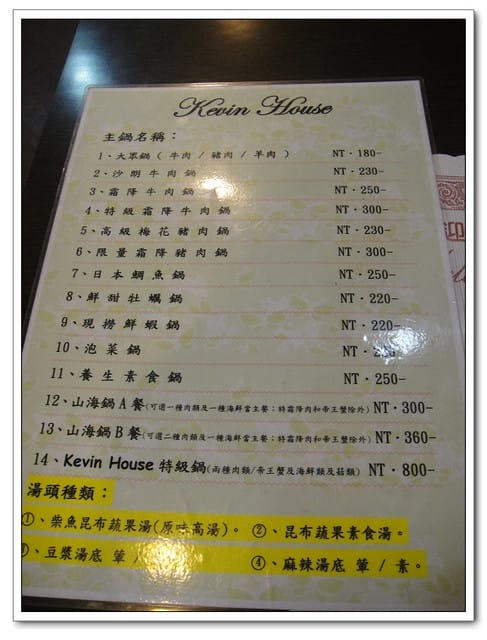 Kevin House
主鍋名稱：
1、大眾鍋 ( 牛肉 / 豬肉 / 羊肉 ) NT・180-
2、沙朗牛肉鍋 NT・230-
3、霜降牛肉鍋 NT・250-
4、特級霜降牛肉鍋 NT・300-
5、高級梅花豬肉鍋 NT・230-
6、限量霜降豬肉鍋 NT・300-
7、日本鯛魚鍋 NT・250-
8、鮮甜牡蠣鍋 NT・220-
9、現撈鮮蝦鍋 NT・220-
10、泡菜鍋 NT・
11、養生素食鍋 NT・250-
12、山海鍋A餐(可選一種肉類及一種海鮮當主餐；特霜降肉和帝王蟹除外) NT・300-
13、山海鍋B餐(可選二種肉類及一種海鮮當主餐；特霜降肉和帝王蟹除外) NT・360-
14、Kevin House 特級鍋(兩種肉類/帝王蟹及海鮮類及菇類) NT・800-
湯頭種類：
①、柴魚昆布蔬果湯(原味高湯)。 ②、昆布蔬果素食湯。
、豆漿湯底 葷 / ④、麻辣湯底 葷 / 素。
迎